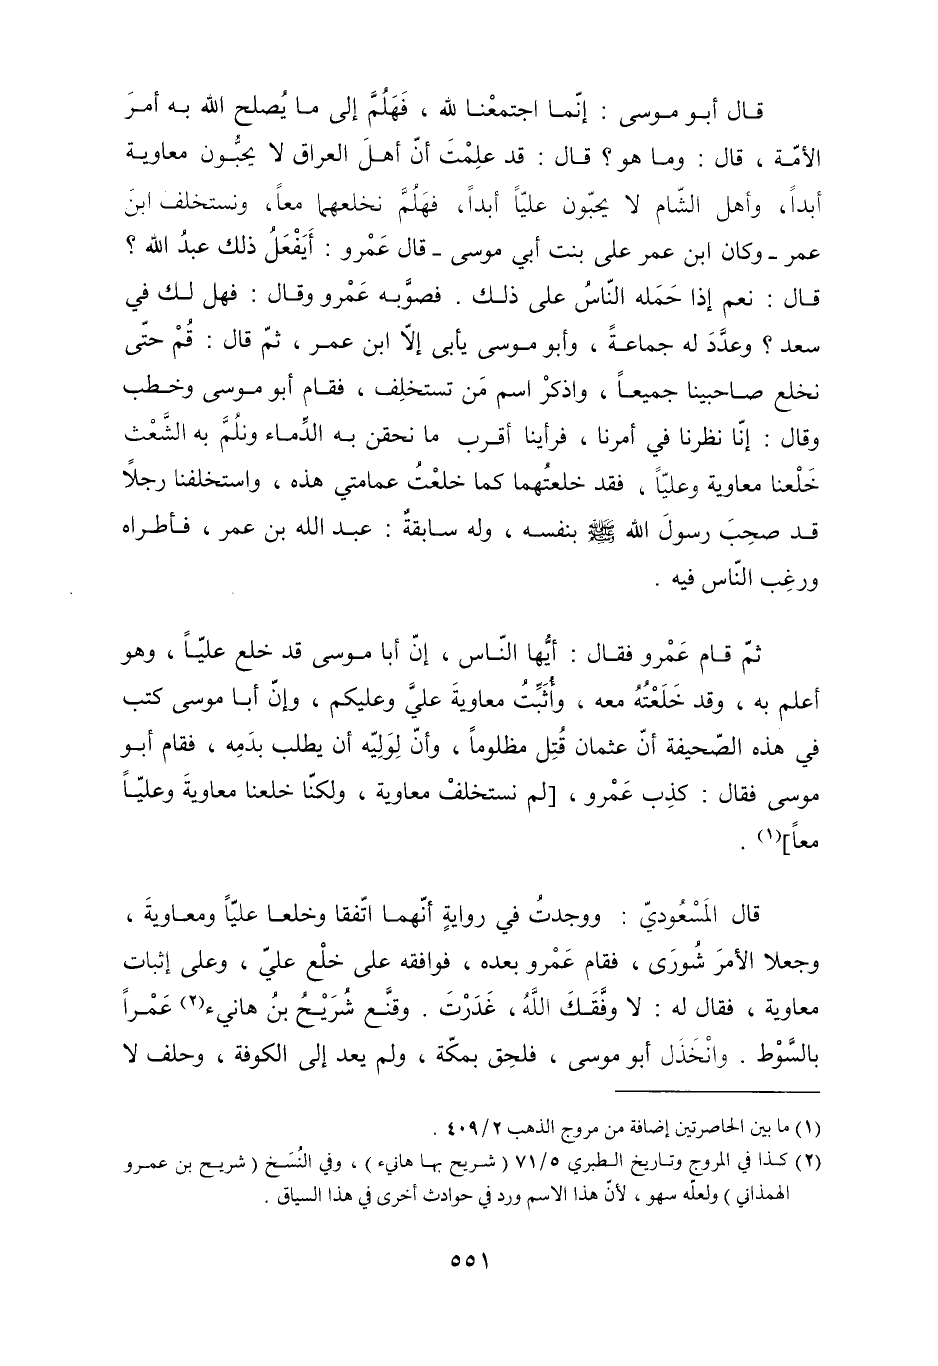 قال أبو موسى : إنّما اجتمعْنا لله ، فَهَلُمَّ إلى ما يُصلح الله به أمرَ
الأمّة ، قال : وما هو؟ قال : قد علِمْتَ أنّ أهلَ العراق لا يحبُّون معاوية
أبداً، وأهل الشّام لا يحبّون عليّاً أبداً، فهَلُمَّ نخلعهما معاً، ونستخلف ابنَ
عمر ـ وكان ابن عمر على بنت أبي موسى ـ قال عَمْرو : أَيَفْعَلُ ذلك عبدُ الله ؟
قال : نعم إذا حَمَله النّاسُ على ذلك . فصوَّبه عَمْرو وقال : فهل لك في
سعد ؟ وعدَّدَ له جماعةً ، وأبو موسى يأبى إلّا ابن عمر ، ثمّ قال : قُمْ حتّى
نخلع صاحبينا جميعاً ، واذكرْ اسم مَن تستخلِف ، فقام أبو موسى وخطب
وقال : إنّا نظرنا في أمرنا ، فرأينا أقرب ما نحقن به الدِّماء ونلُمَّ به الشَّعْث
خَلْعنا معاوية وعليّاً ، فقد خلعتُهما كما خلعْتُ عمامتي هذه ، واستخلفنا رجلاً
قد صحِبَ رسولَ الله ﷺ بنفسه ، وله سابقةٌ : عبد الله بن عمر ، فأطراه
ورغِب النّاس فيه .
ثمّ قام عَمْرو فقال : أيُّها النّاس ، إنّ أبا موسى قد خلع عليّاً ، وهو
أعلم به ، وقد خَلَعْتُهُ معه ، وأُثَبِّتُ معاويةَ عليَّ وعليكم ، وإنّ أبا موسى كتب
في هذه الصّحيفة أنّ عثمان قُتِل مظلوماً ، وأنّ لِوَليّه أن يطلب بدَمِه ، فقام أبو
موسى فقال : كذِب عَمْرو ، [لم نستخلفْ معاوية ، ولكنّا خلعنا معاويةَ وعليّاً
معاً](١) .
قال المَسْعُوديّ : ووجدتُ في روايةٍ أنّهما اتّفقا وخلعا عليّاً ومعاويةَ ،
وجعلا الأمرَ شُورَى ، فقام عَمْرو بعده ، فوافقه على خلْع عليّ ، وعلى إثبات
معاوية ، فقال له : لا وفَّقَكَ اللَّهُ ، غَدَرْتَ . وقنَّع شُرَيْحُ بنُ هانيء(٢) عَمْراً
بالسَّوْط . وانْخَذَل أبو موسى ، فلحِق بمكّة ، ولم يعد إلى الكوفة ، وحلف لا
(١) ما بين الحاصرتين إضافة من مروج الذهب ٤٠٩/٢ .
(٢) كذا في المروج وتاريخ الطبري ٧١/٥ ( شريح بها هانيء ) ، وفي النُسَخ ( شريح بن عمرو
الهمذاني ) ولعلّه سهو ، لأنّ هذا الاسم ورد في حوادث أخرى في هذا السياق .
٥٥١